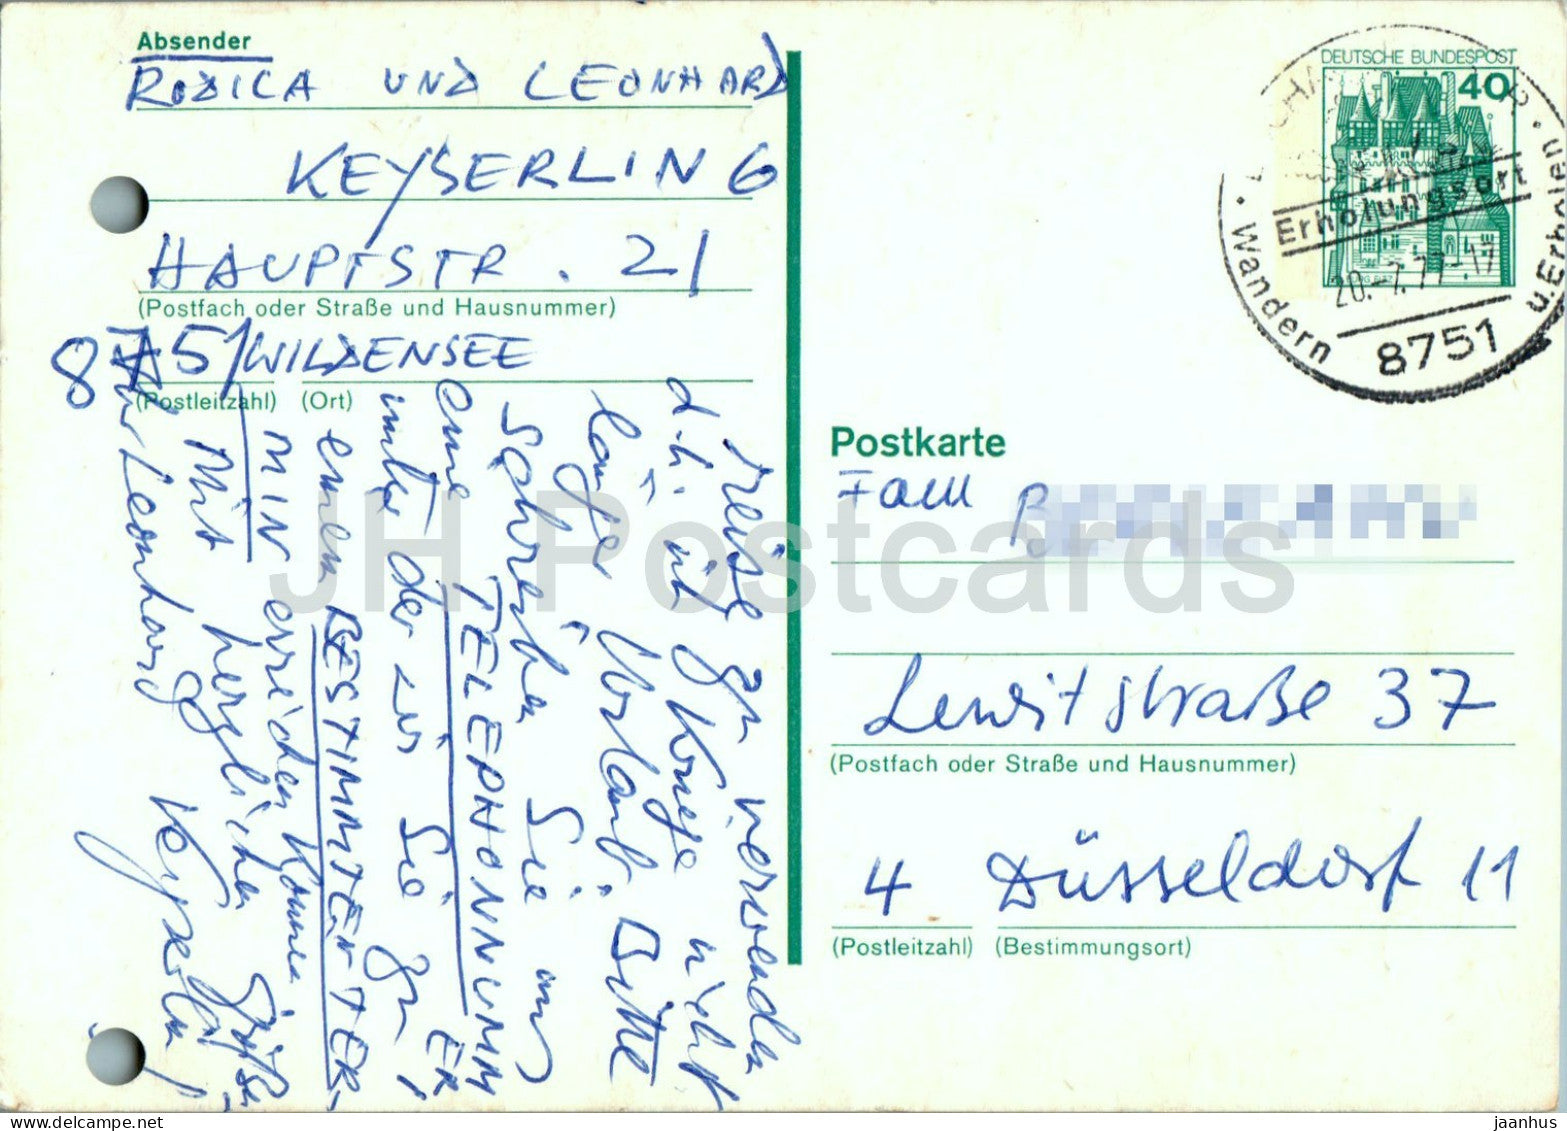 Absender
RODICA UND LEONHARD
KEYSERLING
HAUPTSTR. 21
(Postfach oder Straße und Hausnummer)
8751 WILDENSEE
(Postleitzahl) (Ort)
zu verwenden
d.h. ich kriege nicht
länger Urlaub. Bitte
schreiben Sie uns
eine TELEPHONNUMM
ER
unter der wir Sie zu
einen BESTIMMTER TER-
MIN erreichen können
Mit herzlichen Grüßen
Ihr Leonhard Keyserling
DEUTSCHE BUNDESPOST
40
Erholungsort
20.-7.77-17
Wandern
u. Erholen
8751
Postkarte
Fam
Lewitstraße 37
(Postfach oder Straße und Hausnummer)
4 Düsseldorf 11
(Postleitzahl) (Bestimmungsort)
JH Postcards
delcampe.net
jaanhus